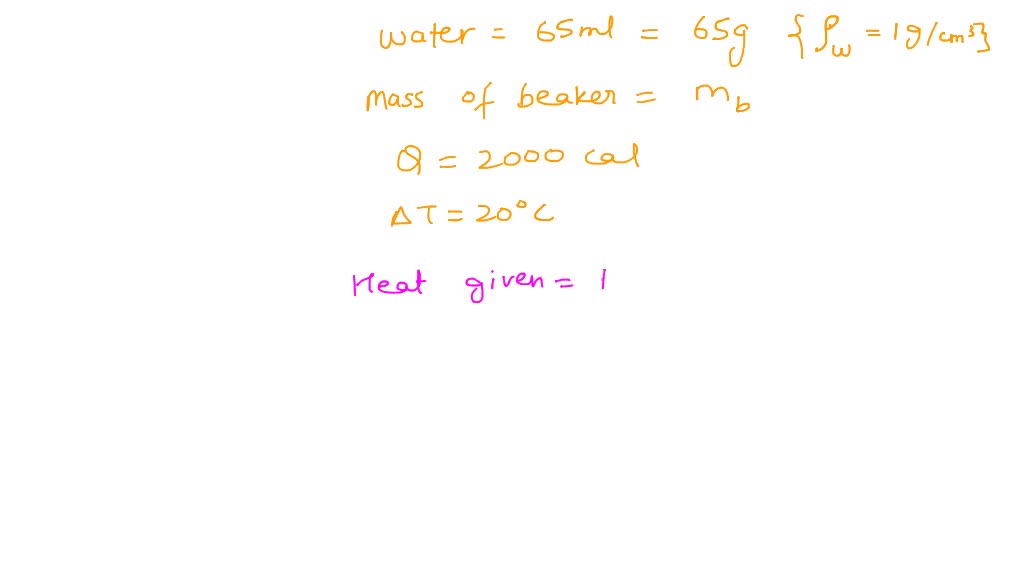 water = 65ml = 65g {ρw = 1g/cm³}
Mass of beaker = mb
Q = 2000 cal
ΔT = 20°C
Heat given = 1